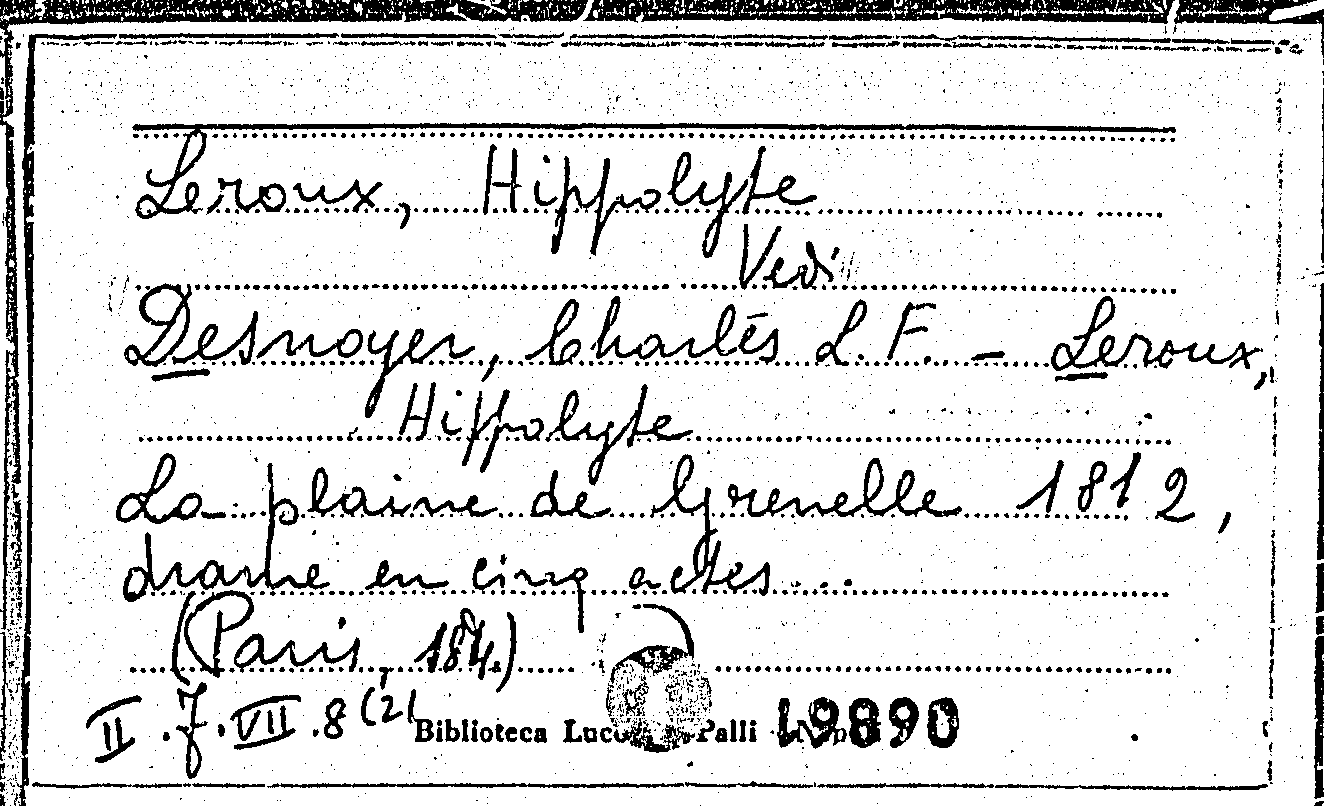 Leroux, Hippolyte
Vedi
Desnoyer, Charles L. F. - Leroux,
Hippolyte
La plaine de Grenelle 1812,
drame en cinq actes...
(Paris, 184.)
II. J. VII. 8 (2(
Biblioteca Palli 19890